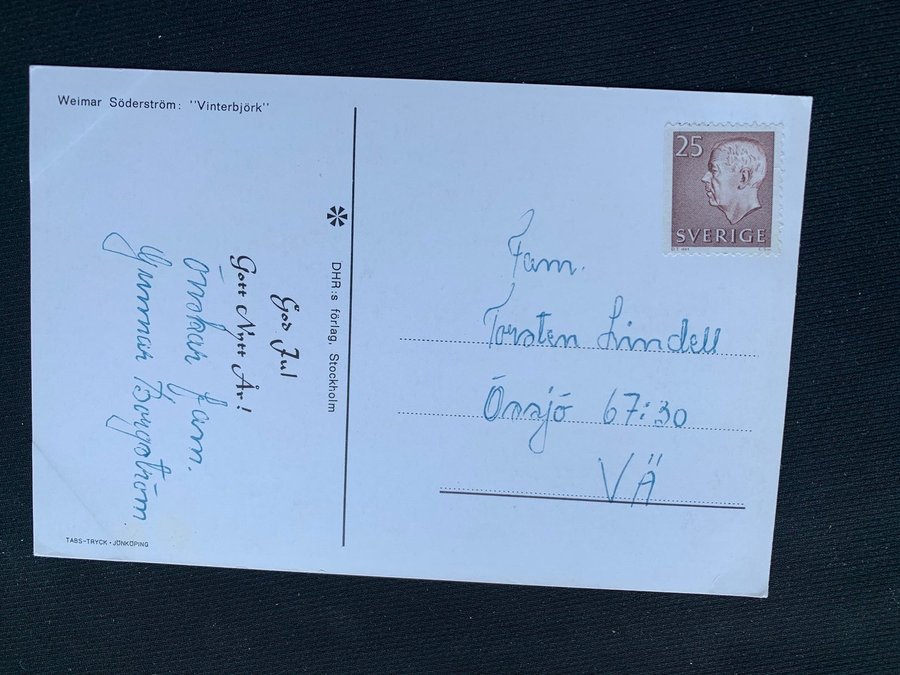 Weimar Söderström: "Vinterbjörk"
God Jul
Gott Nytt År!
önskar fam.
Gunnar Borgström
TABS-TRYCK • JÖNKÖPING
DHR:s förlag, Stockholm
25
SVERIGE
Fam.
Torsten Lindell
Önsjö 67:30
VÄ